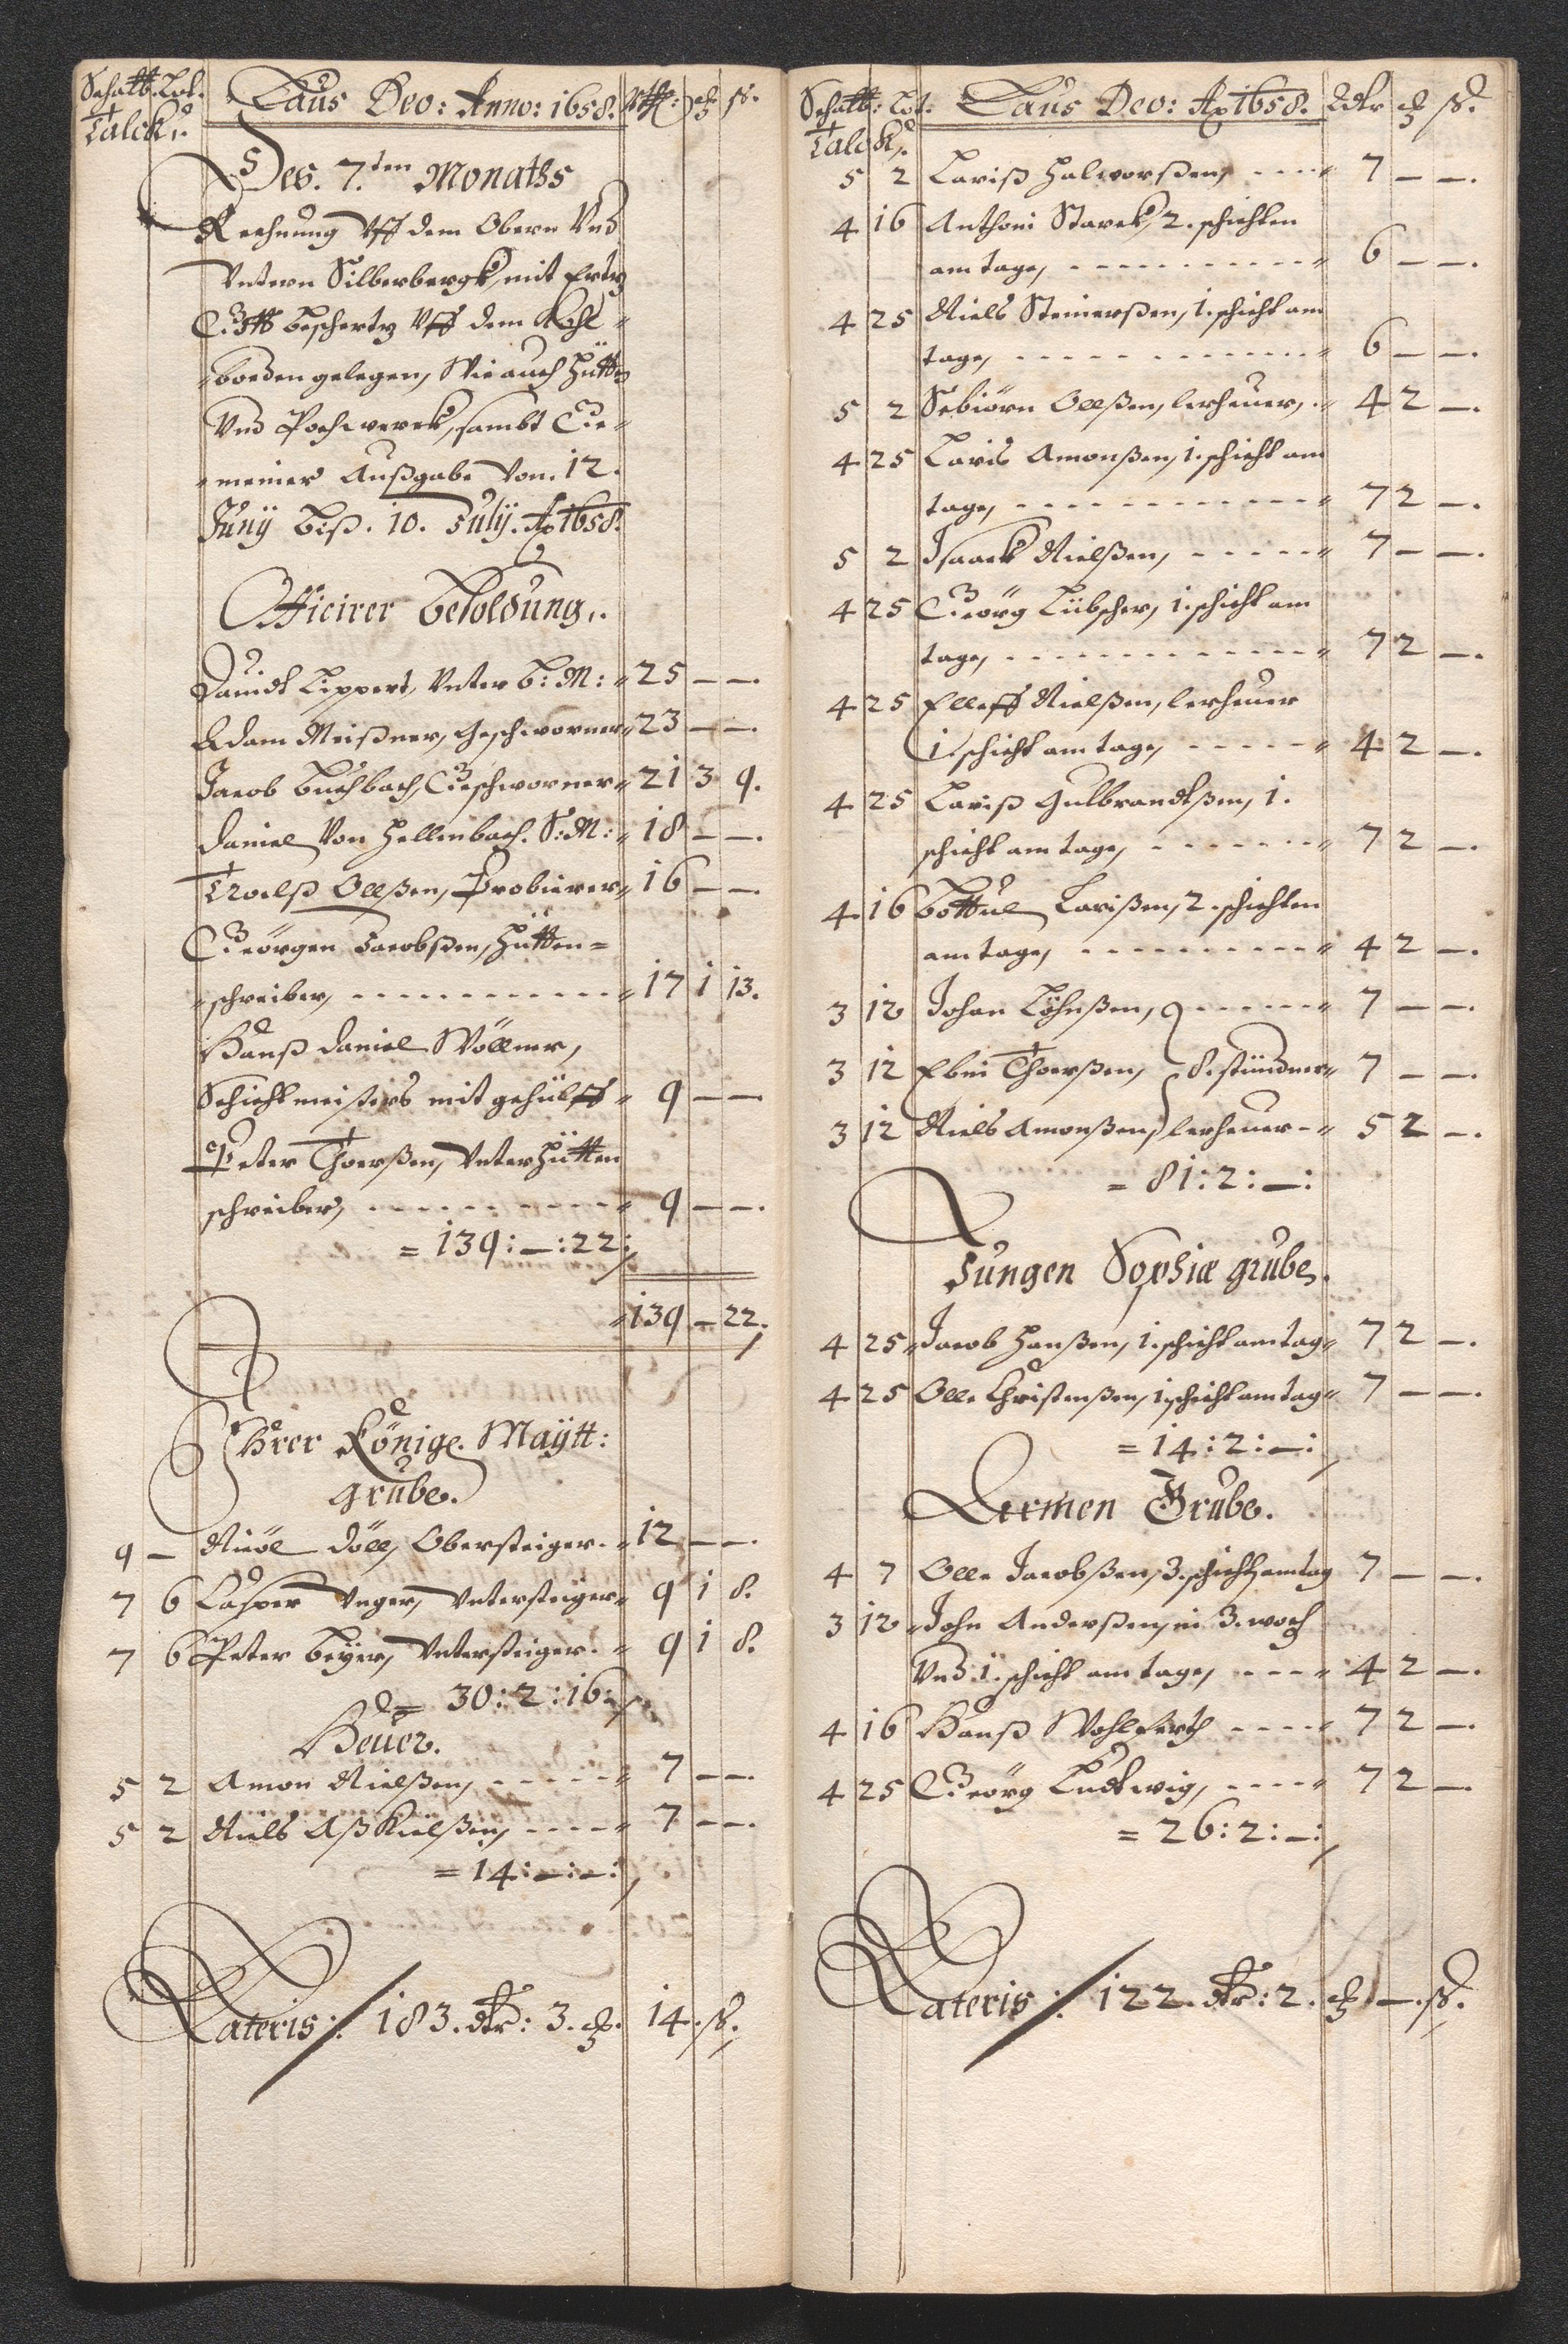 Schalb: Lot. Laus Deo: Anno: 1658. Rthr: ß.
Talck:
Des. 7.ten Monaths
Rechnung Vff dem Obern Vnd
Vntern Silberbergk, mit Ertz
Gott beschertz Vff dem Kohl-
-boeden gelegen, Wie auch Hütt
Vnd Pochwerck, sambt Ge-
-meiner Außgabe Von. 12.
Juny biß. 10. July. Ao 1658.
Officirer besoldung.
Dauidt Lippert, Vnter B: M: 25 — —.
Adam Meißner, Geschworner 23 — —.
Jacob Buchbach, Geschworner 21 3 9.
Daniel Von Hellenbach. S: M: 18 — —.
Troelß Ollßen, Probierer 16 — —
Georgen Jacobßen, Hütten=
-schreiber, 17 1 13.
Hanß Daniel Wöllner,
Schichtmeisters mit gehülff 9 — —
Peter Thorßen, Vnter Hütten
schreiber, 9 — —.
= 139: —: 22:
139 — 22.
Ihrer Königl. Maÿtt:
grube.
9 — Nicol Döll, Obersteiger. 12 — —.
7 6 Casper Vnger, Vntersteiger 9 1 8.
7 6 Peter Beÿer, Vntersteiger. 9 1 8.
= 30: 2: 16:
Heuer.
5 2 Amon Nielßen, 7 — —.
5 2 Niels Aßkielßen, 7 — —.
= 14: —: —:
Lateris: 183. dtr: 3. 14. ß.
Schalb: Lot. Laus Deo: Ao 1658. Rdtr ß.
Talck:
5 2 Lariß Halworßen, 7 — —.
4 16 Anthoni Starck, 2. schichten
am tage, 6 — —.
4 25 Niels Steinerßen, 1. schicht am
tage, 6 — —.
5 2 Sebiörn Ollßen, lerheuer, 4 2 —.
4 25 Laris Amonßen, 1. schicht am
tage, 7 2 —.
5 2 Isaack Nielßen, 7 — —.
4 25 Georg Lübscher, 1. schicht am
tage, 7 2 —.
4 25 Elleff Nielßen, lerheuer
1. schicht am tage, 4 2 —.
4 25 Lariß Gulbrandtßen, 1.
schicht am tage, 7 2 —.
4 16 Bottul Larißen, 2. schichten
am tage, 4 2 —.
3 12 Johan Löhnßen, 7 — —.
3 12 Ebni Thorßen, 8. stündner 7 — —.
3 12 Niels Amonßen, lerheuer 5 2 —.
= 81: 2: —:
Jungen Sophiæ grube.
4 25 Jacob Hanßen, 1. schicht am tag 7 2 —.
4 25 Olle Christenßen, 1 schicht am tag 7 — —.
= 14: 2: —:
Lermen Grube.
4 7 Olle Jacobßen, 3. schicht am tag 7 — —.
3 12 John Anderßen, in 3. woch
Vnd 1. schicht am tage, 4 2 —.
4 16 Hanß Wohlferth 7 2 —.
4 25 Georg Ludtwig, 7 2 —.
= 26: 2: —:
Lateris: 122. dtr: 2. —. ß.